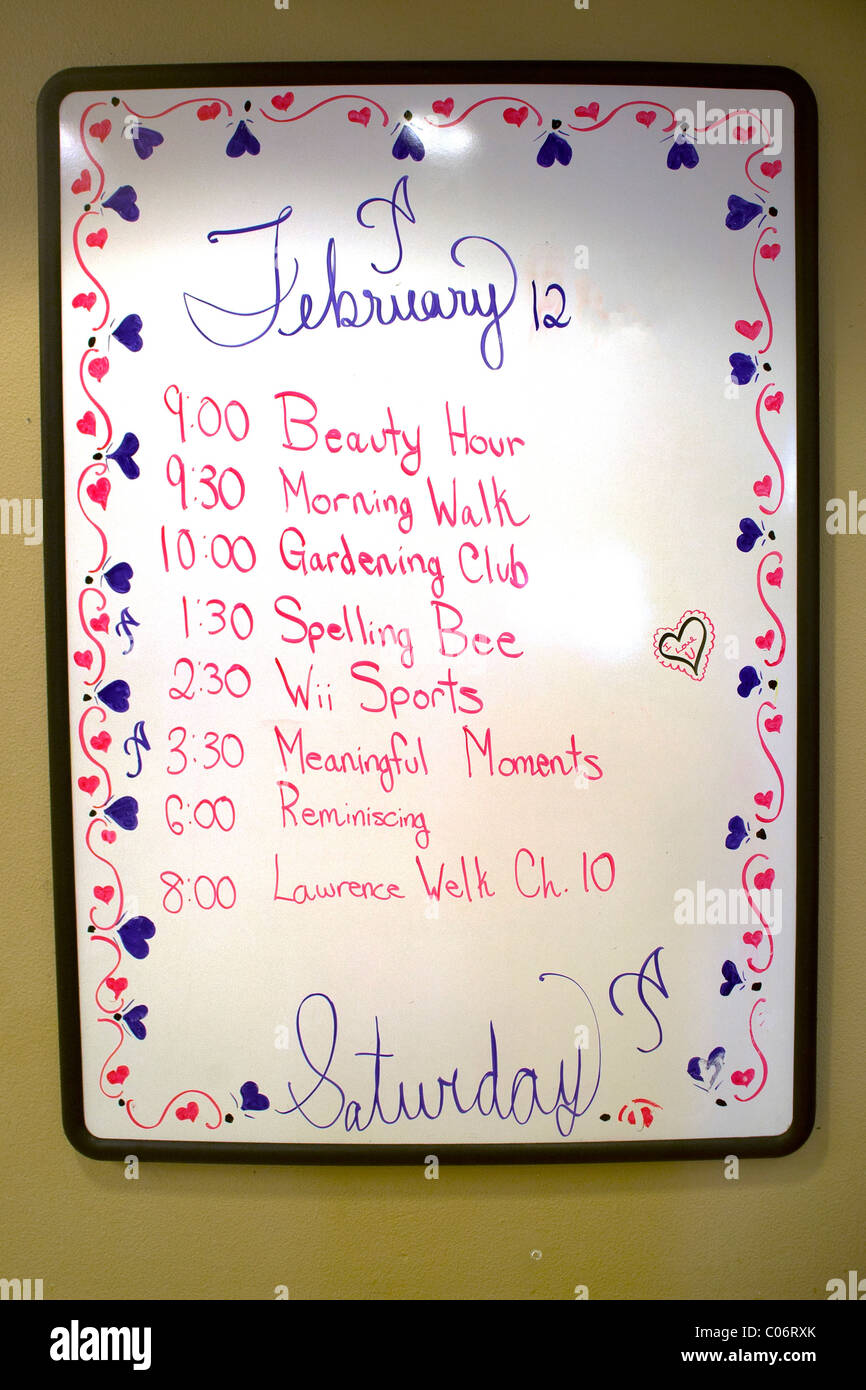 February 12
9:00 Beauty Hour
9:30 Morning Walk
10:00 Gardening Club
1:30 Spelling Bee
I Love U
2:30 Wii Sports
3:30 Meaningful Moments
6:00 Reminiscing
8:00 Lawrence Welk Ch. 10
Saturday
alamy
Image ID: C06RXK
www.alamy.com